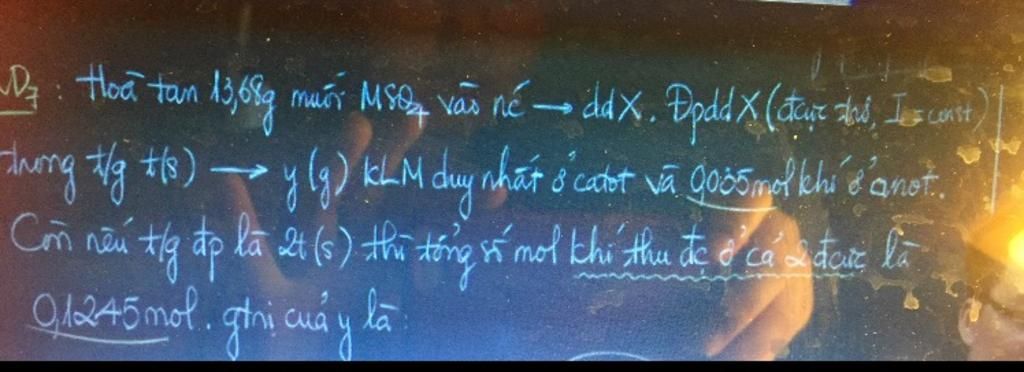 VD7: Hoà tan 13,68g muối MSO4 vào nc → ddX. Đpdd X (đcực trơ, I = const)
trong t/g t(s) → y (g) KLM duy nhất ở catot và 0,035 mol khí ở anot.
Còn nếu t/g đp là 2t (s) thì tổng số mol khí thu đc ở cả 2 đcực là
0,1245 mol. gtri của y là: